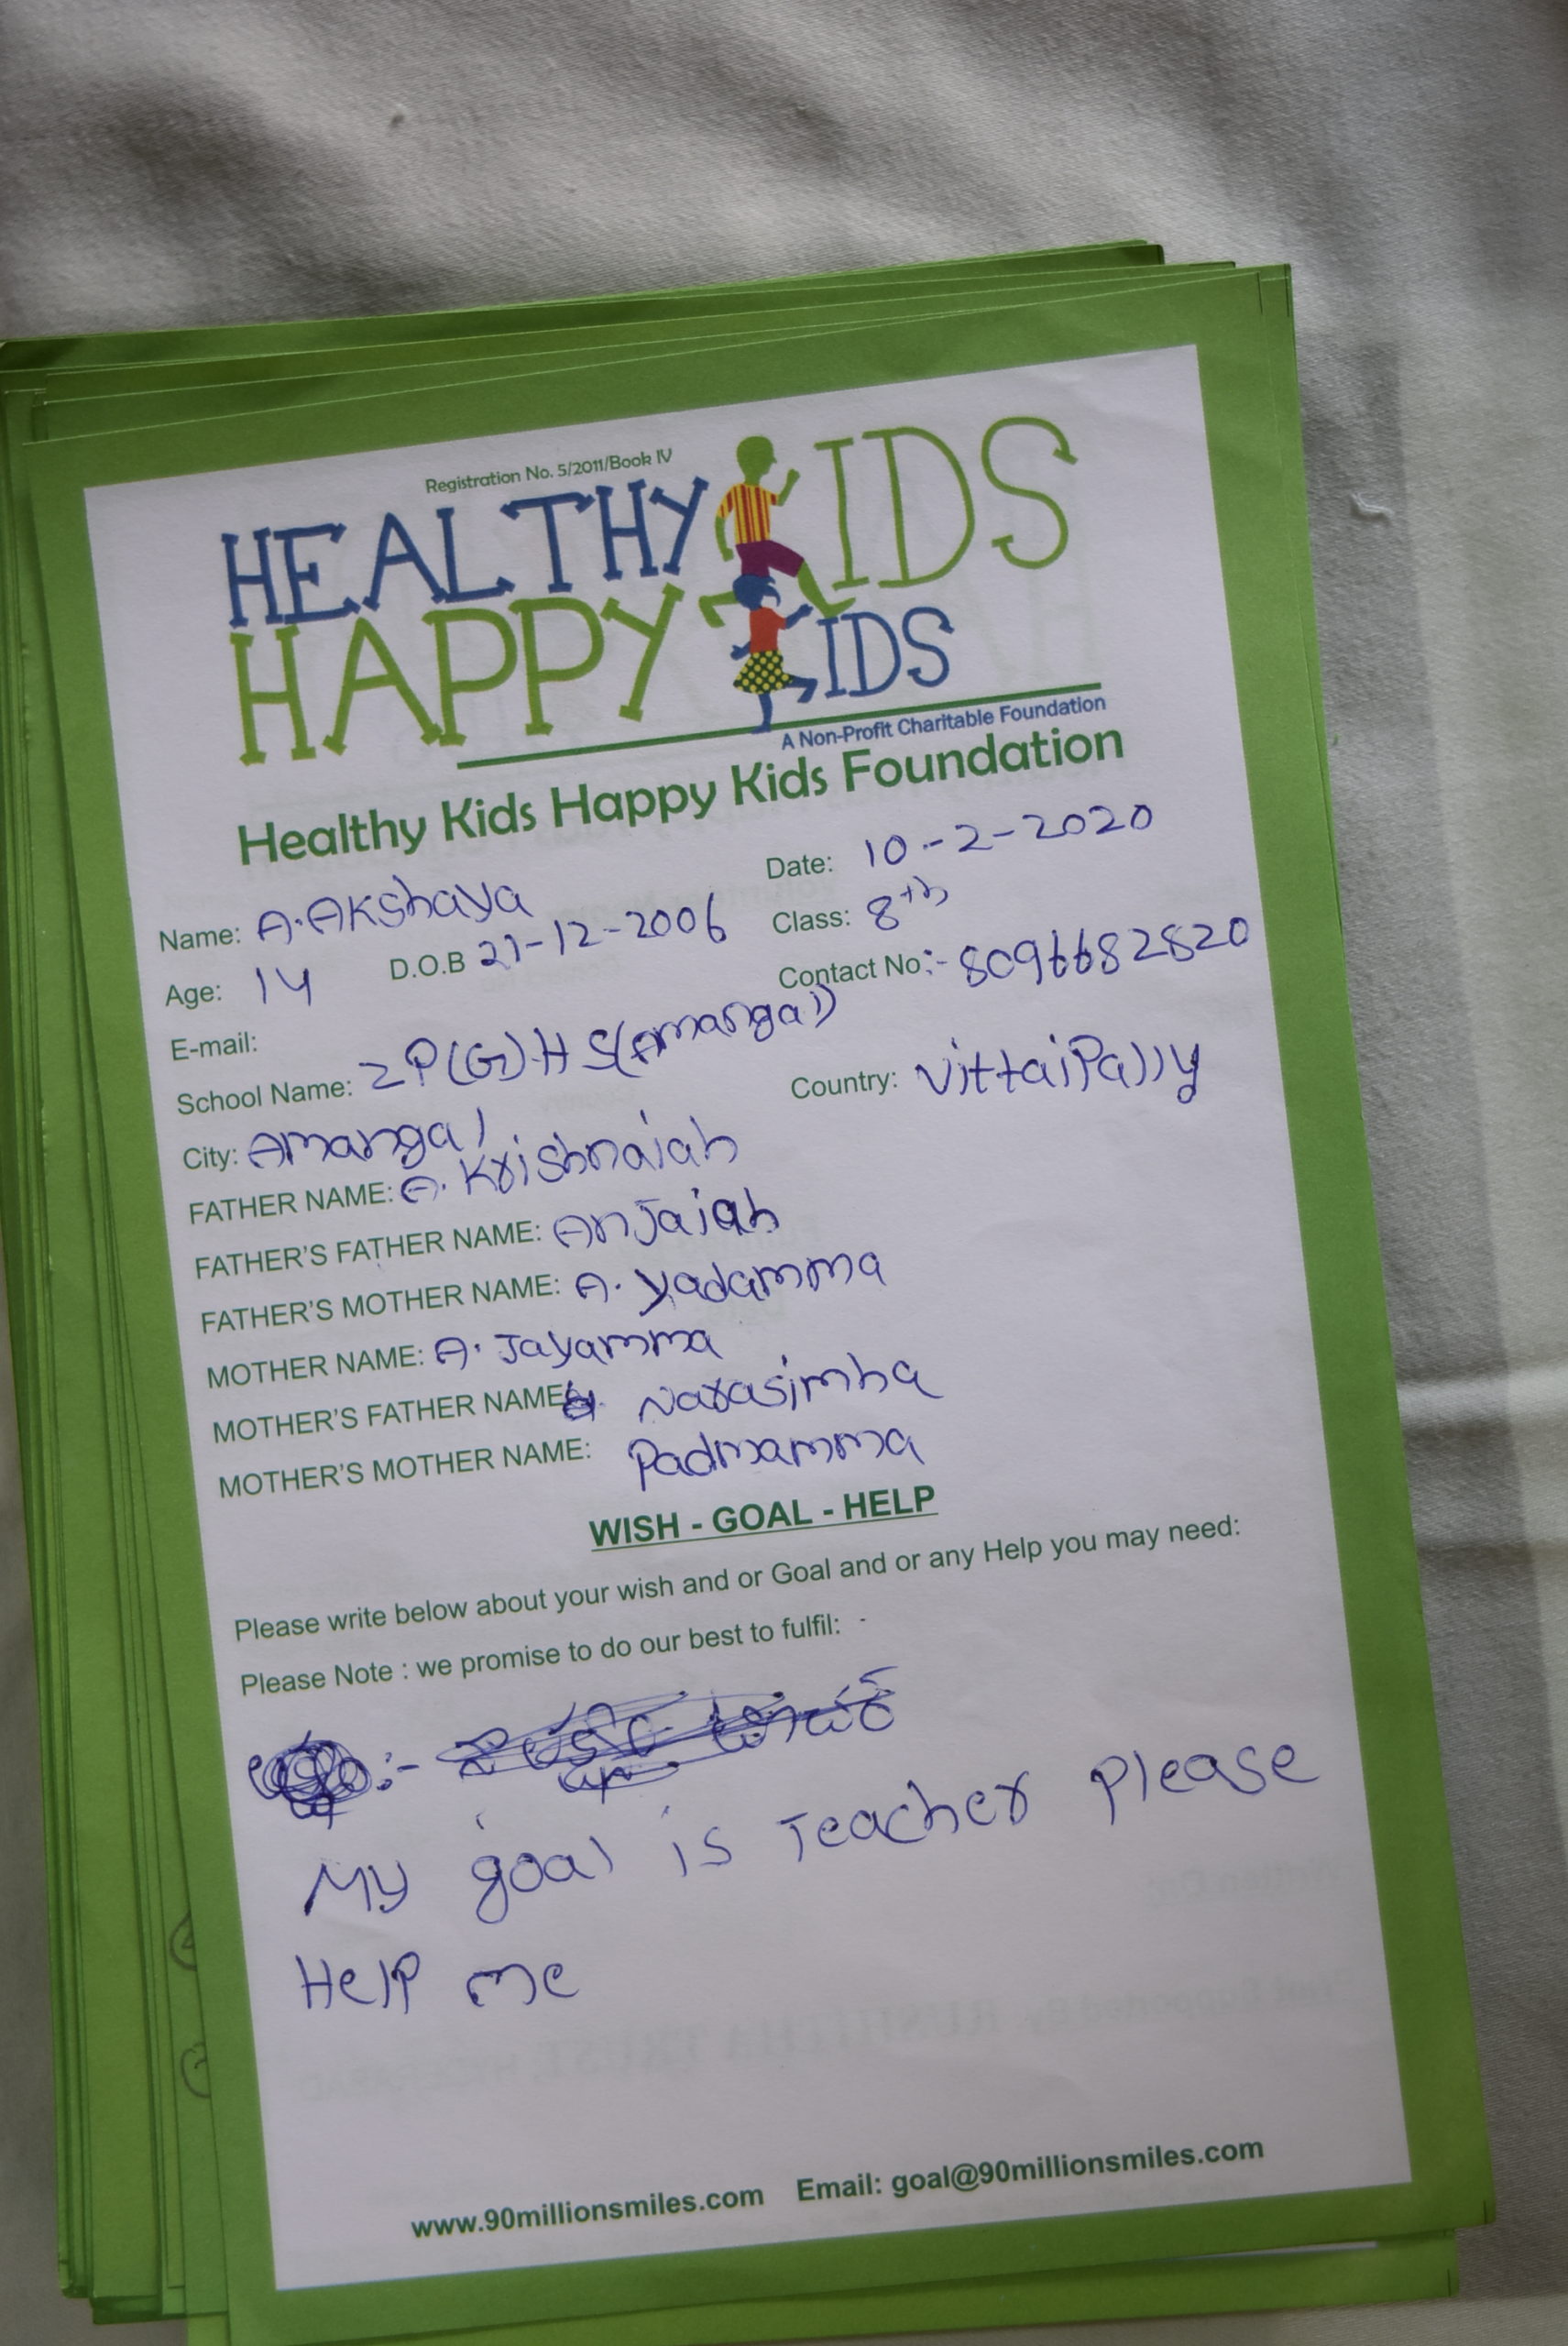 Registration No. 5/2011/Book IV
HEALTHY KIDS
HAPPY KIDS
A Non-Profit Charitable Foundation
Healthy Kids Happy Kids Foundation
Date: 10-2-2020
Name: A.Akshaya
Class: 8th
Age: 14 D.O.B 21-12-2006
Contact No:- 8096682820
E-mail:
School Name: ZP(G).H S(Amangal)
City: Amangal Country: VittaiPally
FATHER NAME: A. Krishnaiah
FATHER'S FATHER NAME: Anjaiah
FATHER'S MOTHER NAME: A. Yadamma
MOTHER NAME: A. Jayamma
MOTHER'S FATHER NAME Narasimha
MOTHER'S MOTHER NAME: Padmamma
WISH - GOAL - HELP
Please write below about your wish and or Goal and or any Help you may need:
Please Note : we promise to do our best to fulfil:
My goal is Teacher please
Help me
www.90millionsmiles.com Email: goal@90millionsmiles.com